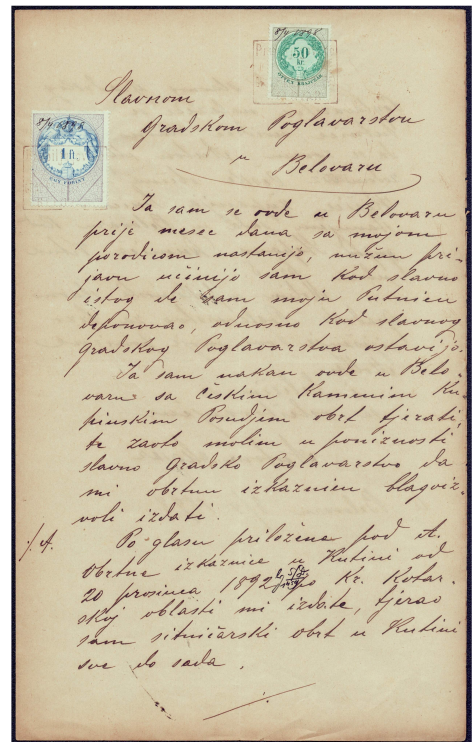 8/4 1898
50
kr.
8/4 1898
1 fl.
EGY FORINT
Slavnom
Gradskom Poglavarstvu
u
Belovaru
Ja sam se ovde u Belovaru
prije mesec dana sa mojom
porodicom nastanijo, nužnu pri-
javu učinijo sam kod slavno
istog de sam moju Putnicu
deponovao, odnosno kod slavnog
gradskog Poglavarstva ostavijo.
Ja sam nakan ovde u Belo-
varu sa českim Kammenim Ku-
pinskim Posudjem obrt tjerati
te zaoto molim u poniznosti
slavno Gradsko Poglavarstvo da
mi obrtnu izkaznicu blagoiz-
voli izdati.
·/. A.
Po glasu priložena pod A.
Obrtne izkaznice u Kutini od
20 prosinca 1892 po kr. Kotar-
skoj oblasti mi izdate, tjerao
sam sitničarski obrt u Kutini
sve do sada.